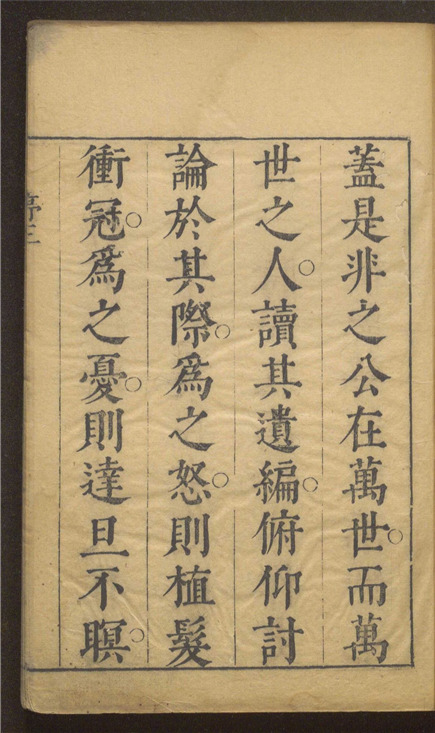 蓋是非之公在萬世。而萬
世之人。讀其遺編。俯仰討
論於其際。爲之怒。則植髮
衝冠。爲之憂。則達旦不瞑。